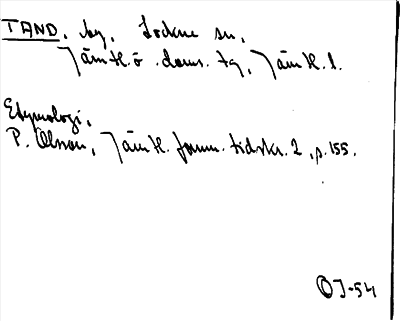 TAND, by, Lockne sn,
Jämtl. ö. doms. tg, Jämtl. l.
Etymologi,
P. Olsson, Jämtl. fornm. tidskr. 2, p. 155.
OJ-54